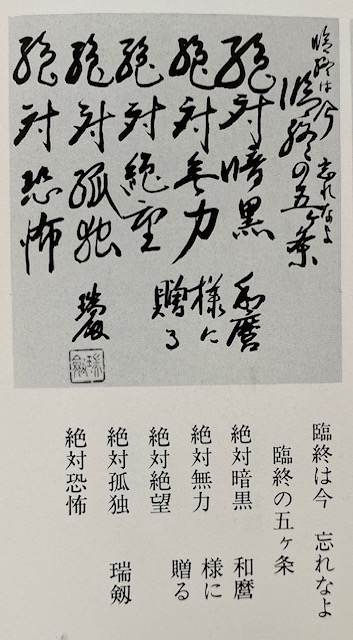 臨終は今 忘れなよ
臨終の五ヶ条
絶対暗黒 和麿
絶対無力 様に
絶対絶望 贈る
絶対孤独 瑞劔
絶対恐怖
臨終は今 忘れなよ
臨終の五ヶ条
絶対暗黒 和麿
絶対無力 様に
絶対絶望 贈る
絶対孤独 瑞劔
絶対恐怖